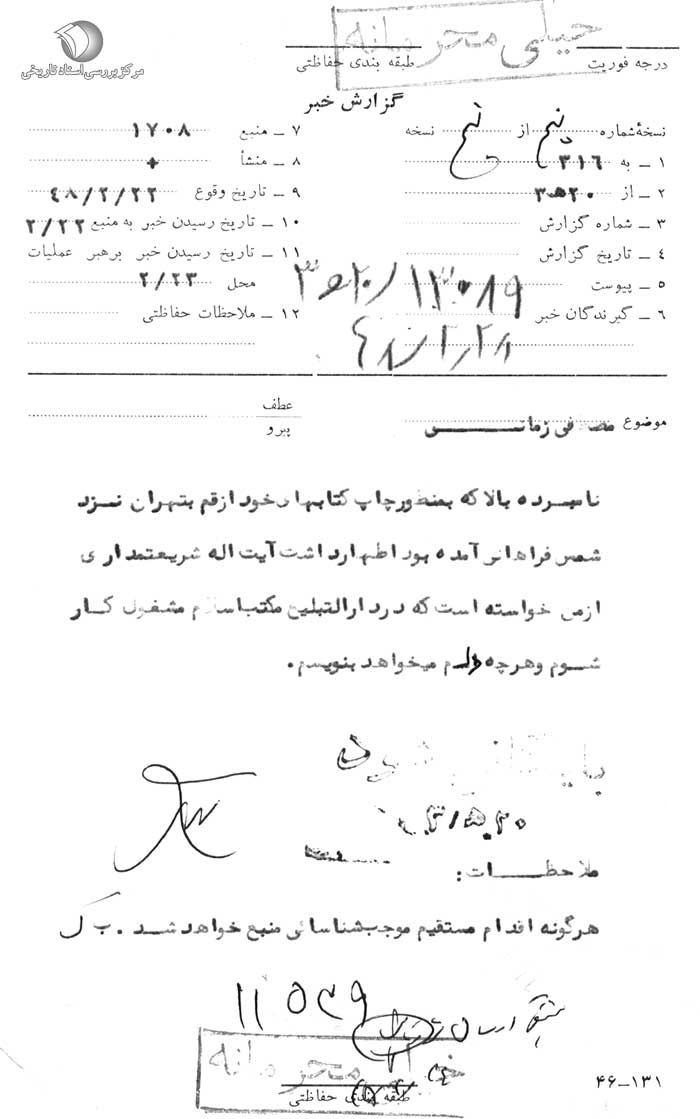 مرکز بررسی اسناد تاریخی
خیلی محرمانه
درجه فوریت
طبقه بندی حفاظتی
گزارش خبر
نسخهٔ شماره پنج از پنج نسخه
۱ ــ به ۳۱۶
۲ ــ از ۲۰ هـ ۳
۳ ــ شماره گزارش
۴ ــ تاریخ گزارش
۵ ــ پیوست
۶ ــ گیرندگان خبر
۷ ــ منبع ۱۷۰۸
۸ ــ منشأ +
۹ ــ تاریخ وقوع ۴۸/۲/۲۲
۱۰ ــ تاریخ رسیدن خبر به منبع ۲/۲۲
۱۱ ــ تاریخ رسیدن خبر برهبر عملیات
محل ۲/۲۳
۱۲ ــ ملاحظات حفاظتی
۴۸/۲/۲۸
موضوع مصطفی زمانــــی
عطف
پیرو
نامبرده بالا که بمنظور چاپ کتابهای خود از قم بتهران نزد
شمس فراهانی آمده بود اظهار داشت آیت اله شریعتمداری
از من خواسته است که در دارالتبلیغ مکتب اسلام مشغول کار
شوم و هرچه دلم میخواهد بنویسم.
بایگانی شود
ملاحظــــات:
هرگونه اقدام مستقیم موجب شناسائی منبع خواهد شد.
خیلی محرمانه
طبقه بندی حفاظتی
۴۶-۱۳۱